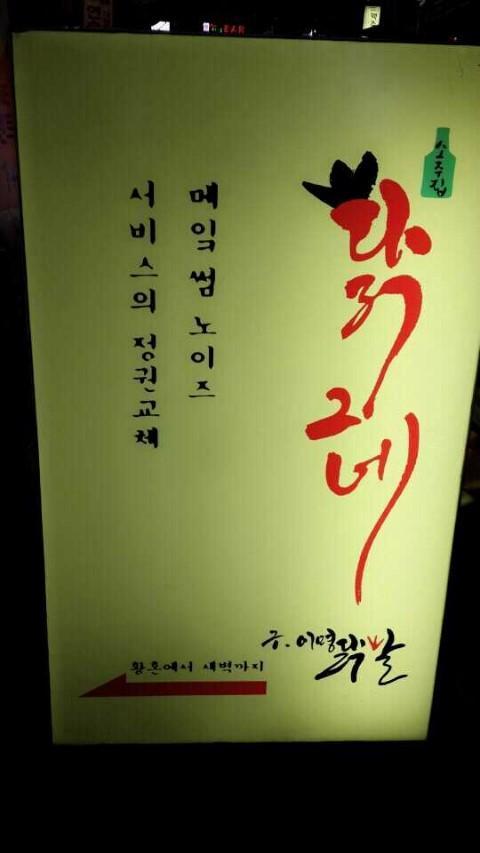 소주집
닭그네
메잌썸 노이즈
서비스의 정권교체
구.이명닭발
황혼에서 새벽까지